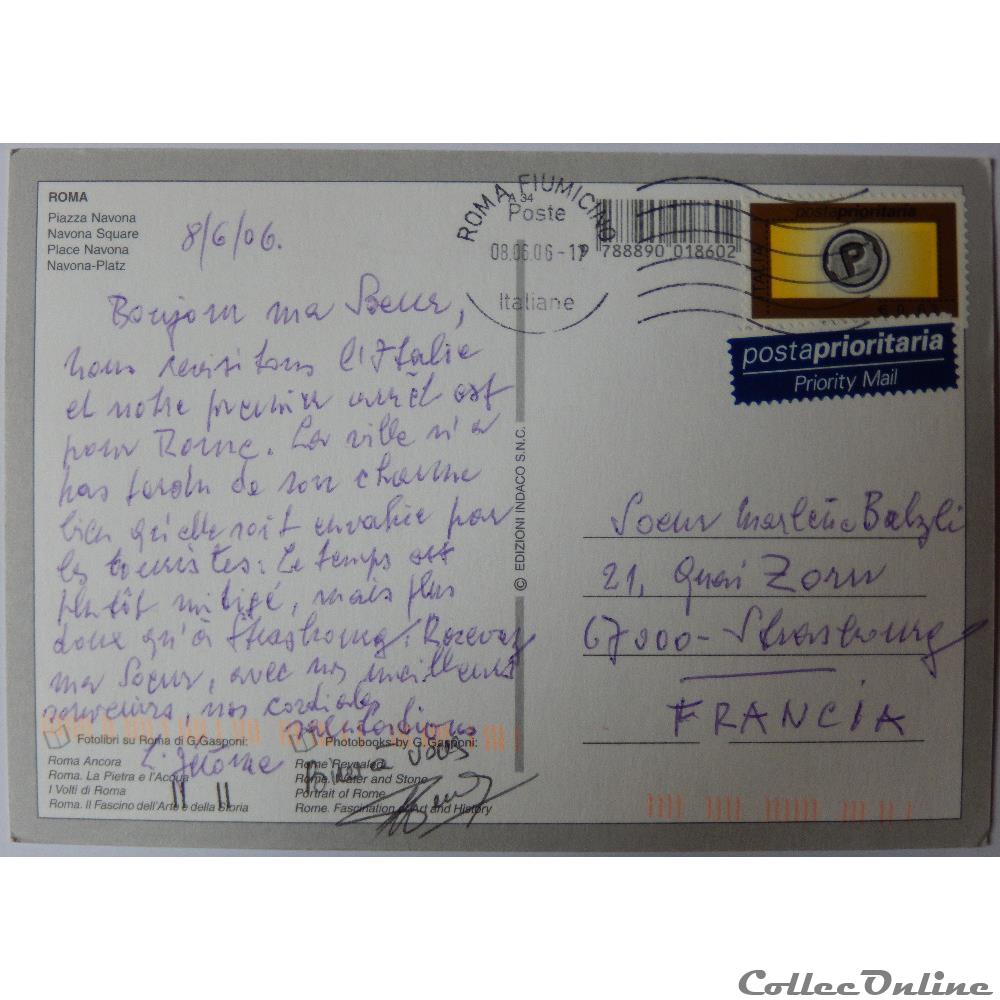 ROMA
Piazza Navona
Navona Square
Place Navona
Navona-Platz
8/6/06.
Bonjour ma Soeur,
nous revisitons l'Italie
et notre premier arrêt est
pour Rome. La ville n'a
pas perdu de son charme
bien qu'elle soit envahie par
les touristes. Le temps est
plutôt mitigé, mais plus
doux qu'à Strasbourg. Recevez
ma Soeur, avec nos meilleurs
souvenirs, nos cordiales
salutations
Jérôme
Bien à vous
Fotolibri su Roma di G.Gasponi:
Roma Ancora
Roma. La Pietra e l'Acqua
I Volti di Roma
Roma. Il Fascino dell'Arte e della Storia
Photobooks by G.Gasponi:
Rome Revealed
Rome. Water and Stone
Portrait of Rome
Rome. Fascination of Art and History
© EDIZIONI INDACO S.N.C.
ROMA FIUMICINO
A 34
Poste
08.06.06-17
Italiane
9 788890 018602
postaprioritaria
ITALIA
P
postaprioritaria
Priority Mail
Soeur Marlène
21, Quai Zorn
67000 - Strasbourg
FRANCIA
CollecOnline